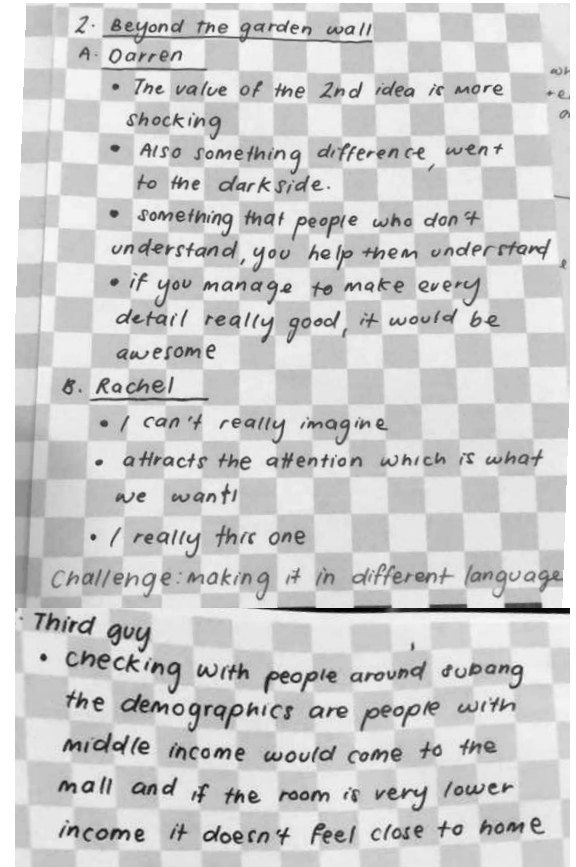 2. Beyond the garden wall
A. Darren
• The value of the 2nd idea is more
shocking
• Also something difference, went
to the darkside.
• something that people who don't
understand, you help them understand
• if you manage to make every
detail really good, it would be
awesome
B. Rachel
• I can't really imagine
• attracts the attention which is what
we want!
• I really this one
Challenge: making it in different language
Third guy
• checking with people around subang
the demographics are people with
middle income would come to the
mall and if the room is very lower
income it doesn't feel close to home